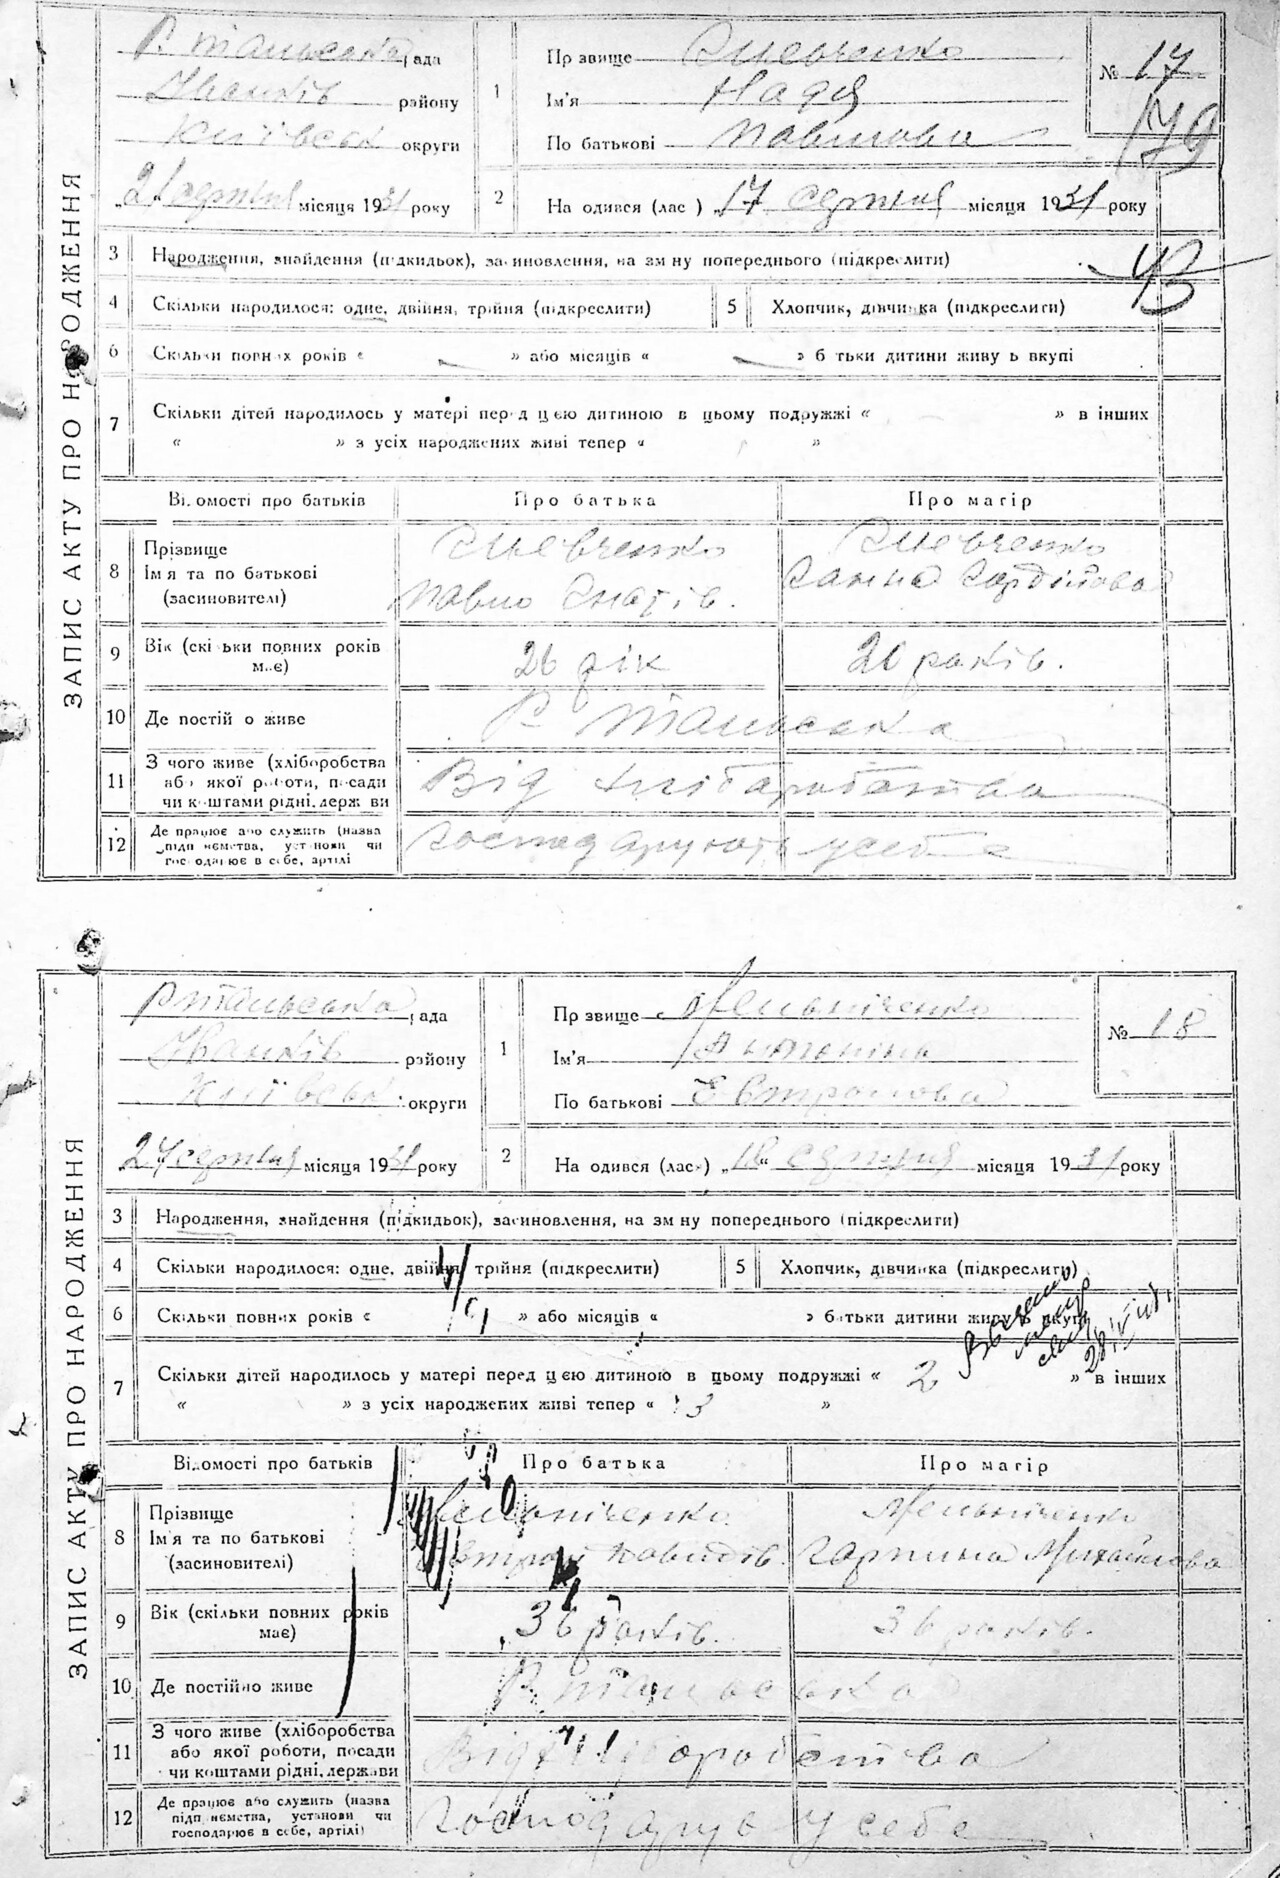 ЗАПИС АКТУ ПРО НАРОДЖЕННЯ
Р. Тальська рада
Іванків району
Київськ округи
„21 серпня місяця 1931 року
1 Прізвище Шевченко
Ім'я Надя
По батькові Павлова
№ 17
179
2 На одився (лас ) „17 серпня місяця 1931 року
3 Народження, знайдення (підкидьок), засиновлення, на зм ну попереднього (підкреслити)
4 Скільки народилося: одне, двійня, трійня (підкреслити)
5 Хлопчик, дівчинка (підкреслити)
6 Скільки повних років « » або місяців « » б тьки дитини живу ь вкупі
7 Скільки дітей народилось у матері перед цією дитиною в цьому подружжі « » в інших
« » з усіх народжених живі тепер « »
Ві омості про батьків Про батька Про матір
8 Прізвище
Ім я та по батькові
(засиновителі)
Шевченко
Павло Гнатів.
Шевченко
Ганна Гордійова
9 Вік (скі ьки повних років
має)
26 рік
20 років.
10 Де постій о живе
Р Тальська
11 З чого живе (хліборобства
або якої роботи, посади
чи коштами рідні, держ ви
Від хліборобства
12 Де працює або служить (назва
підп иємства, установи чи
господарює в себе, артілі
Господарюють у себе
ЗАПИС АКТУ ПРО НАРОДЖЕННЯ
Р Тальська рада
Іванків району
Київськ округи
24 серпня місяця 1931 року
1 Пр звище Мельніченко
Ім'я Антоніна
По батькові Євтропова
№ 18
2 На одився (лась) „18“ серпня місяця 1931 року
3 Народження, знайдення (підкидьок), засиновлення, на зм ну попереднього (підкреслити)
4 Скільки народилося: одне, двійня, трійня (підкреслити)
5 Хлопчик, дівчинка (підкреслити)
6 Скільки повних років « » або місяців « » батьки дитини живуть вкупі
7 Скільки дітей народилось у матері перед цією дитиною в цьому подружжі « 2 » в інших
« » з усіх народжених живі тепер « 3 »
Відомості про батьків Про батька Про матір
8 Прізвище
Ім'я та по батькові
(засиновителі)
Мельніченко
Мельніченко
Горпина Михайлова
9 Вік (скільки повних років
має)
36 років.
36 років.
10 Де постійно живе
Р Тальська
11 З чого живе (хліборобства
або якої роботи, посади
чи коштами рідні, держави
Від хліборобства
12 Де працює або служить (назва
підп иємства, установи чи
господарює в себе, артілі)
Господарує у себе